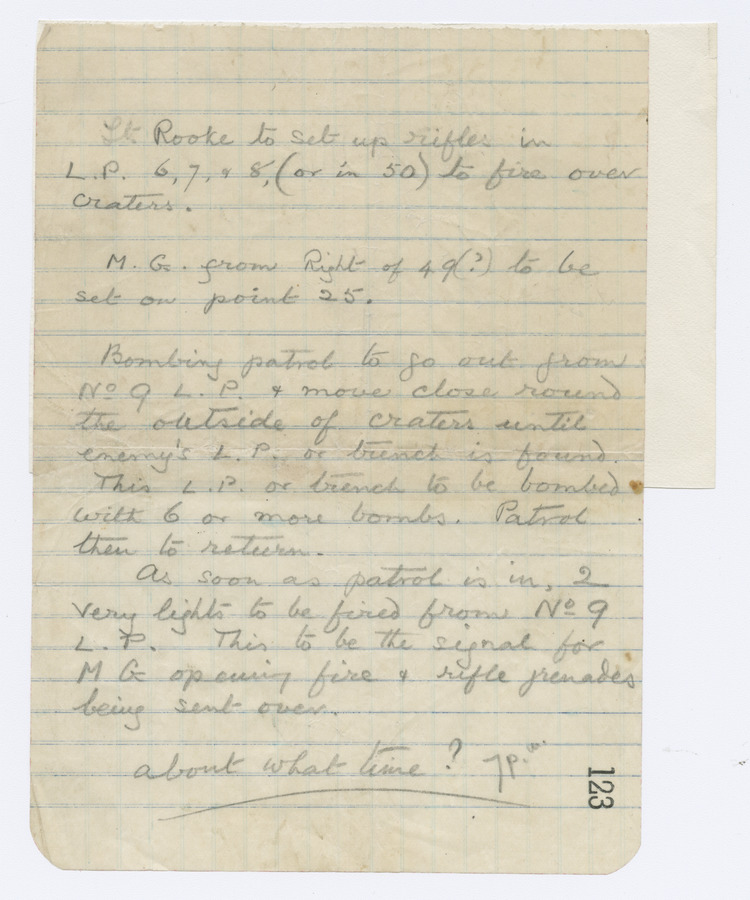 Lt Rooke to set up rifles in
L.P. 6, 7, & 8, (or in 50) to fire over
craters.
M. G. from Right of 49(?) to be
set on point 25.
Bombing patrol to go out from
No 9 L. P. & move close round
the outside of craters until
enemy's L. P. or trench is found.
This L.P. or trench to be bombed
with 6 or more bombs. Patrol
then to return.
As soon as patrol is in, 2
very lights to be fired from No 9
L. P. This to be the signal for
M G opening fire & rifle grenades
being sent over.
about what time? 7 p.m.
123